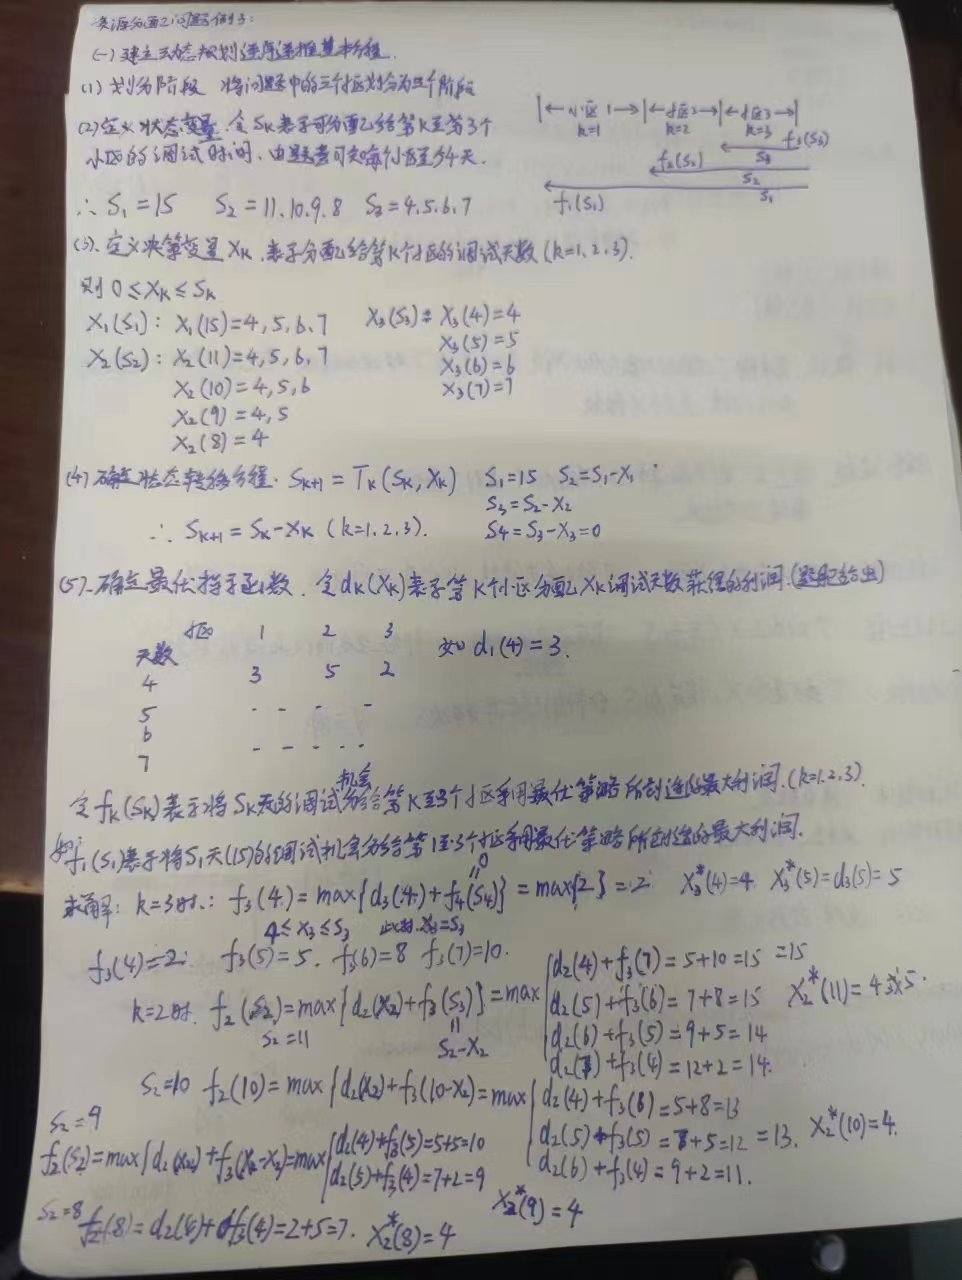 资源分配问题例3:
(一)建立动态规划逆序递推基本方程.
(1)划分阶段 将问题中的三个小区划分为三个阶段
|←小区1→|←小区2→|←小区3→|
k=1 k=2 k=3
f₃(S₃)
S₃
f₂(S₂)
S₂
f₁(S₁) S₁
(2)定义状态变量,令Sₖ表示可分配给第K至第3个
小区的调试时间.由题意可知每小区至少4天.
∴ S₁=15 S₂=11.10.9.8 S₃=4.5.6.7
(3).定义决策变量Xₖ.表示分配给第K个小区的调试天数(k=1.2.3).
则0≤Xₖ≤Sₖ
X₁(S₁): X₁(15)=4,5,6,7 X₃(S₃): X₃(4)=4
X₃(5)=5
X₂(S₂): X₂(11)=4,5,6,7 X₃(6)=6
X₂(10)=4,5,6 X₃(7)=7
X₂(9)=4,5
X₂(8)=4
(4)确定状态转移方程. Sₖ₊₁=Tₖ(Sₖ,Xₖ) S₁=15 S₂=S₁-X₁
S₃=S₂-X₂
∴ Sₖ₊₁=Sₖ-Xₖ (k=1.2.3). S₄=S₃-X₃=0
(5).确定最优指标函数.令dₖ(Xₖ)表示第K个小区分配Xₖ调试天数获得的利润.(题配给出)
小区 1 2 3 如d₁(4)=3.
天数
4 3 5 2
5 - - - -
6
7 - - - - -
令fₖ(Sₖ)表示将Sₖ天的调试机会分给第K至3个小区采用最优策略所创造的最大利润.(k=1.2.3)
如f₁(S₁)表示将S₁天(15)的调试机会分给第1至3个小区采用最优策略所创造的最大利润.
求解: k=3时.: f₃(4)=max{d₃(4)+f₄(S₄)}=max{2}=2 X₃*(4)=4 X₃*(5)=d₃(5)=5
=0
4≤X₃≤S₃ 此时.X₃=S₃
f₃(4)=2. f₃(5)=5. f₃(6)=8 f₃(7)=10.
k=2时. f₂(S₂)=max{d₂(X₂)+f₃(S₃)}=max{d₂(4)+f₃(7)=5+10=15 =15
S₂=11 S₂-X₂
d₂(5)+f₃(6)=7+8=15 X₂*(11)=4或5.
d₂(6)+f₃(5)=9+5=14
d₂(7)+f₃(4)=12+2=14.
S₂=10 f₂(10)=max{d₂(X₂)+f₃(10-X₂)=max{d₂(4)+f₃(6)=5+8=13
d₂(5)+f₃(5)=7+5=12 =13. X₂*(10)=4.
d₂(6)+f₃(4)=9+2=11.
S₂=9
f₂(S₂)=max{d₂(X₂)+f₃(X₂-X₂)=max{d₂(4)+f₃(5)=5+5=10
d₂(5)+f₃(4)=7+2=9
X₂*(9)=4
S₂=8 f₂(8)=d₂(4)+f₃(4)=2+5=7. X₂*(8)=4